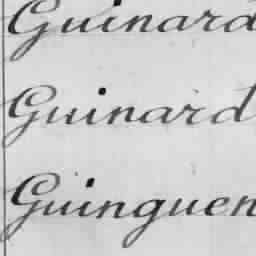 Guinard
Guinard
Guinguen